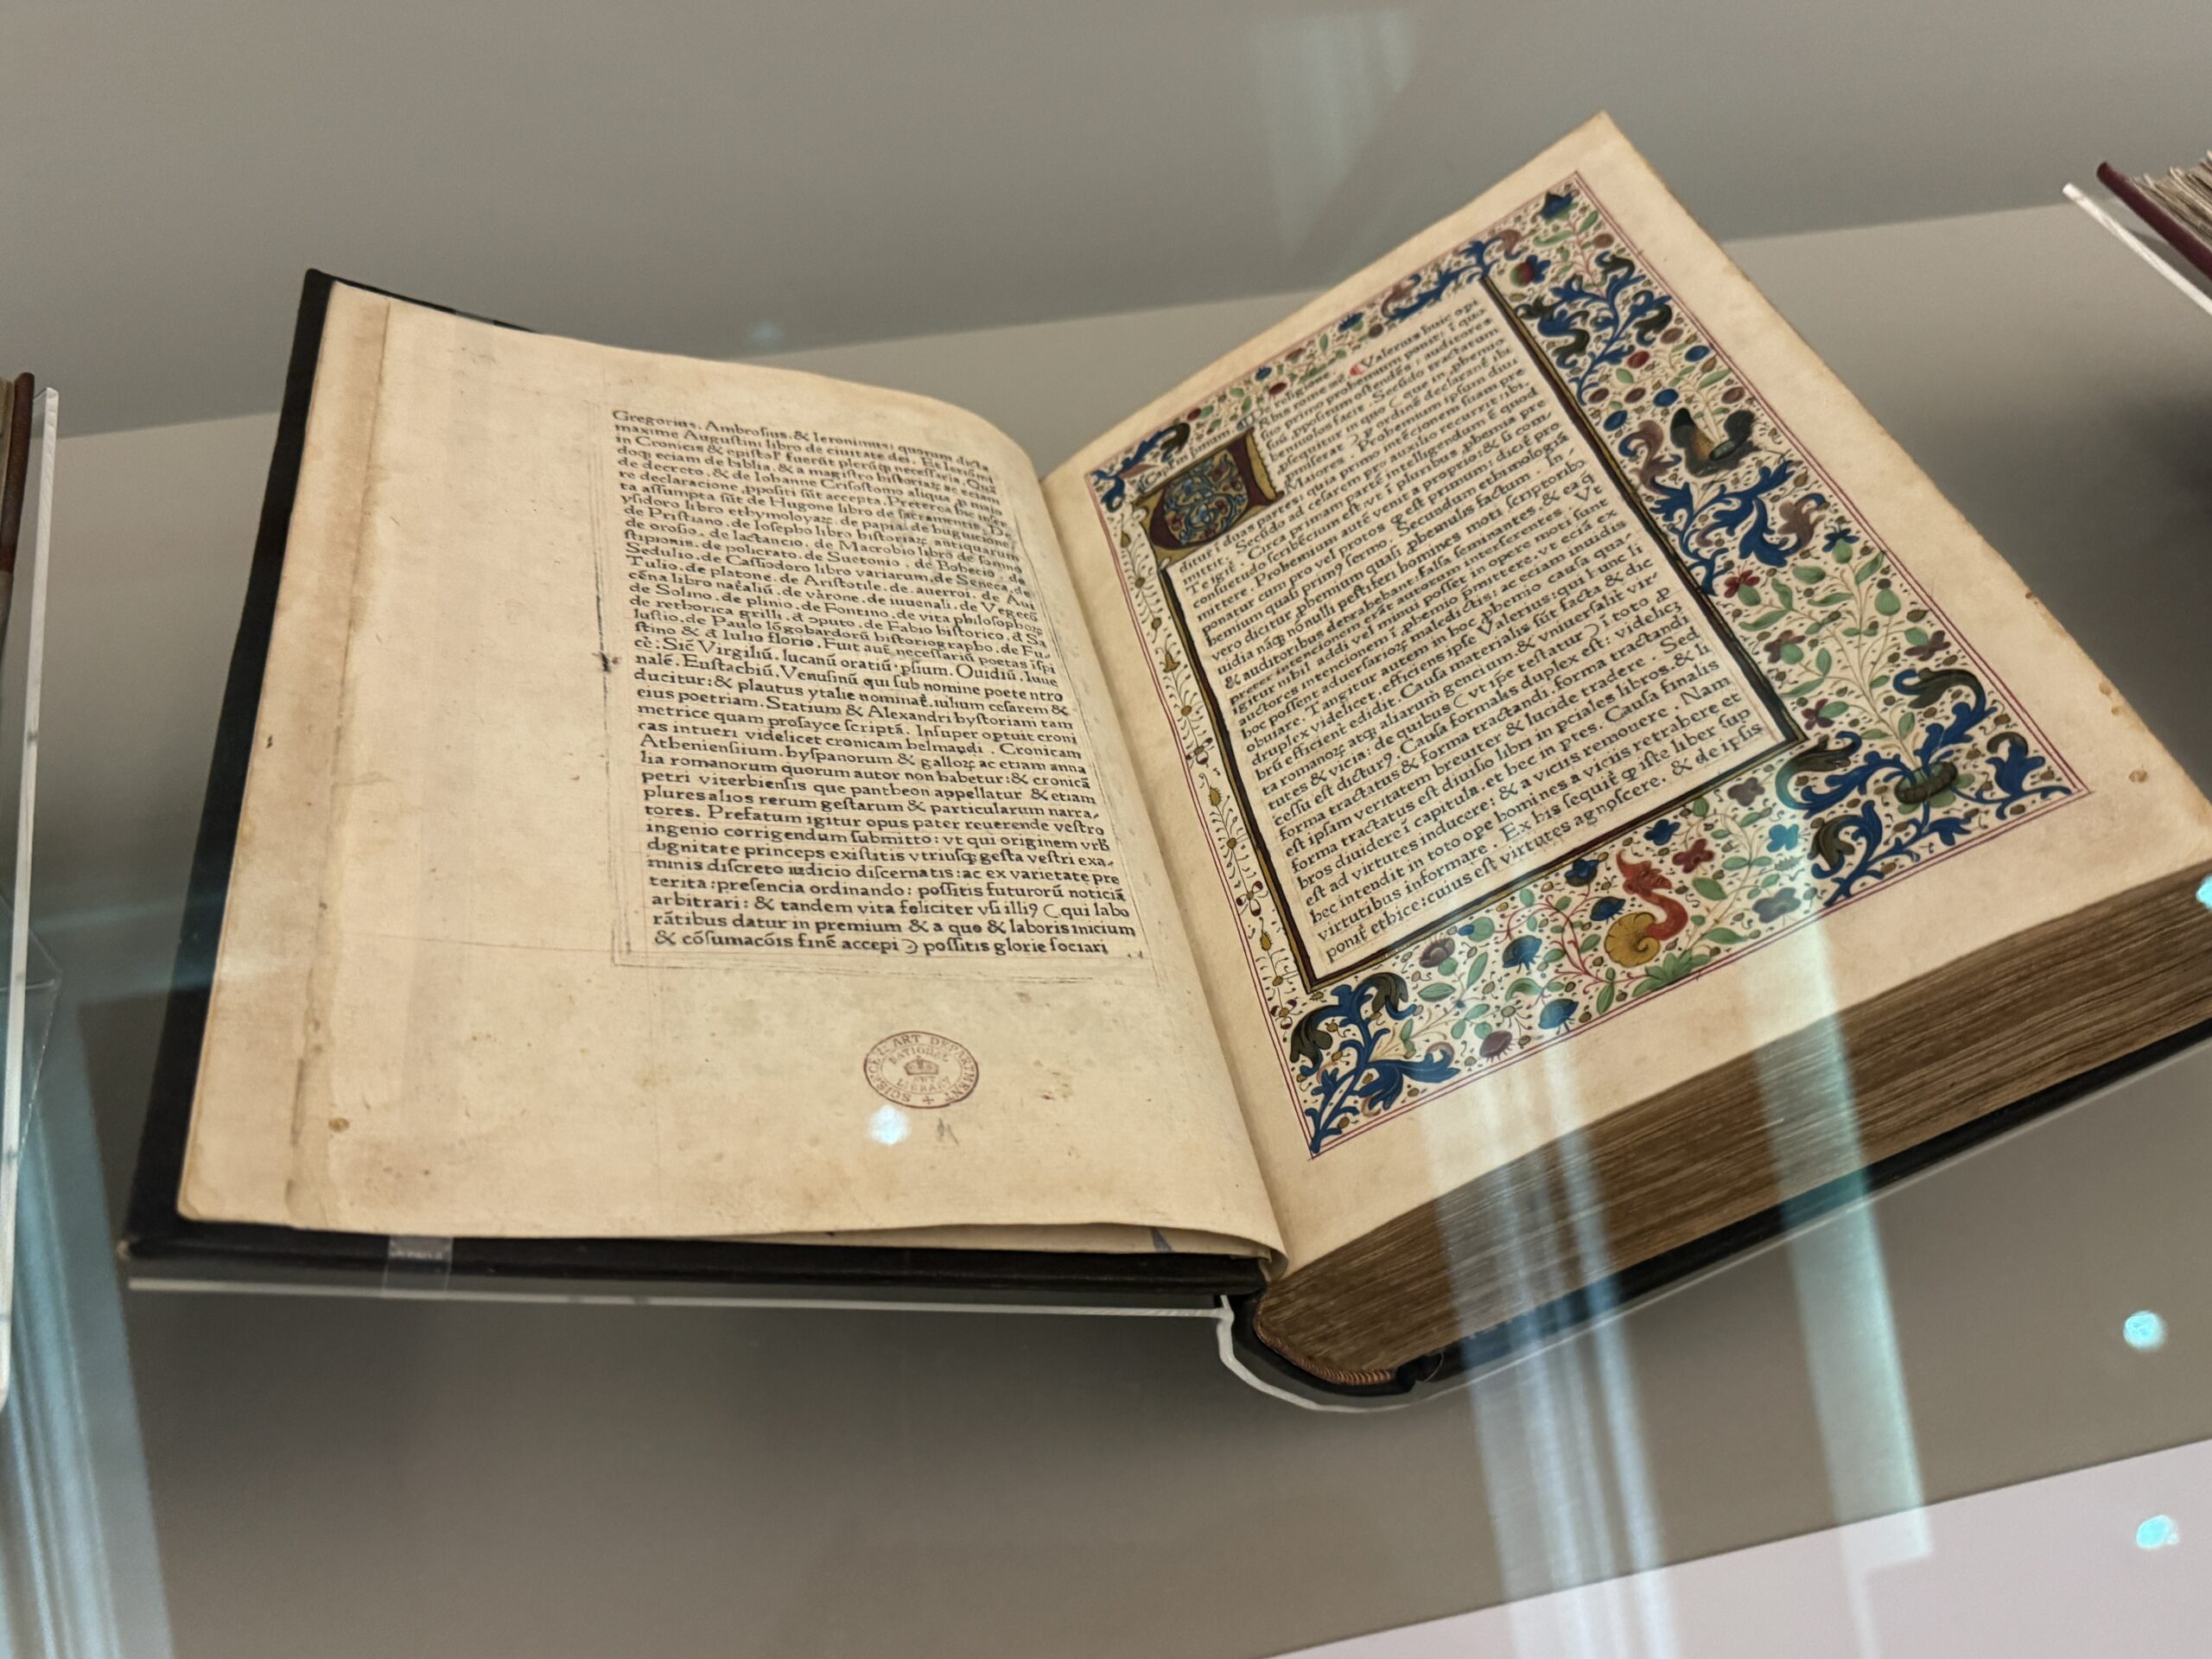 Gregorius. Ambrosius. & Ieronimus: quorum dicta
maxime Augustini libro de ciuitate dei. Et Ieronimi
in Cronicis & epistol' fuerūt plerūq; necessaria. Quā
doq; eciam de biblia. & a magistro historiaꝝ ac eciam
de decreto. & de Iohanne Crisostomo aliqua ꝓ maio
re declaracione ꝓpositi sūt accepta. Preterea hic inser
ta assumpta sūt de Hugone libro de sacramentis. De
ysidoro libro ethymoloyaꝝ. de papia. de hugucione.
de Prisciano. de Iosepho libro historiaꝝ antiquarum
de orosio. de lactancio. de Macrobio libro de somno
stipionis. de policrato. de Suetonio. de Bohecio. de
Sedulio. de Cassiodoro libro variarum. de Seneca. de
Tulio. de platone. de Aristotile. de auerroi. de Aui
cēna libro natāliū. de varone. de iuuenali. de Vegecō
de Solino. de plinio. de Fontino. de vita philosophoꝝ
de rethorica grilli. d ꝯputo. de Fabio historico. d Sa
lustio. de Paulo lōgobardorū historiographo. de Fu-
stino & d Iulio floro. Fuit aut̄ necessariū poetas īspi
cē: Sic̄ Virgiliū. lucanū oratiū. ꝑsium. Ouidiū. Iuue
nalē. Eustachiū. Venusinū qui sub nomine poete ntro
ducitur: & plautus ytalie nominat̄. iulium cesarem &
eius poetriam. Statium & Alexandri hystoriam tam
metrice quam prosayce scriptā. Insuper optuit croni
cas intueri videlicet cronicam helmandi. Cronicam
Atheniensium. hyspanorum & galloꝝ ac etiam anna
lia romanorum quorum autor non habetur: & cronicā
petri viterbiensis que pantheon appellatur & etiam
plures alios rerum gestarum & particularum narra-
tores. Prefatum igitur opus pater reuerende vestro
ingenio corrigendum submitto: vt qui originem vrb̄
dignitate princeps existitis vtriusq; gesta vestri exa-
minis discreto iudicio discernatis: ac ex varietate pre
terita: presencia ordinando: possitis futurorū noticiā
arbitrari: & tandem vita feliciter vsi illiꝰ (qui labo
rātibus datur in premium & a quo & laboris inicium
& cōsumacōis finē accepi) possitis glorie sociari
SCIENCE & ART DEPARTMENT
NATIONAL
ART
LIBRARY
Valerius huic opi
suo primo prohemium ponit: ī quo
suū ꝓpositum ostendēs: auditores
beniuolos facit. Secūdo tractatum
ꝓsequitur in quo (que in ꝓhemio
ꝓmiserat) ꝑ ordinē declarant̄ ibi
Maiores. Prohemium ipsum diui
ditur ī duas partes: quia primo intēcionem suam pre
mittit. Secūdo ad cesarem pro auxilio recurrit: ibi.
Te igit̄. Circa primam partē intelligendum ē quod
consuetudo scribēcium est: vt ī pluribus ꝓhemia pre
mittere. Prohemium autē venit a proprio: & si com-
ponatur cum pro vel protos qꝫ est primum: dicit̄ pro
hemium quasi primꝰ sermo. Secundum ethimologiā
vero dicitur ꝓhemium quasi ꝓhemulis factum. In-
uidia nāqꝫ nōnulli pestiferi homines moti scriptoribꝫ
& auditoribus detrahebant: falsa seminantes. & ea q̄
preter intencionem erāt autorum interserentes. Vt
igitur nihil addi vel minui posset in opere moti sunt
auctores intencionem ī ꝓhemio ꝓmittere. vt eciā ex
hoc possent aduersarioꝝ maledictis: ac eciam inuidis
obuiare. Tangitur autem in hoc ꝓhemio causa qua-
druplex videlicet. efficiens ipse Valerius: qui hunc li
brū efficient̄ edidit. Causa materialis sūt facta & dic
ta romanoꝝ atqꝫ aliarum gencium. & vniuersalit̄ vir-
tutes & vicia: de quibus (vt ipe testatur) ī toto ꝓ
cessu est dicturꝰ. Causa formalis duplex est: videlicꝫ
forma tractatus & forma tractandi. forma tractandi
est ipsam veritatem breuiter & lucide tradere. Sed
forma tractatus est diuisio libri in ꝑciales libros. & li
bros diuidere ī capitula. et hec in ꝑtes. Causa finalis
est ad virtutes inducere: & a viciis remouere. Nam
hec intendit in toto ope homines a viciis retrahere et
virtutibus informare. Ex his sequit̄ qꝫ iste liber sup
ponit̄ ethice: cuius est virtutes agnoscere. & de ipsis